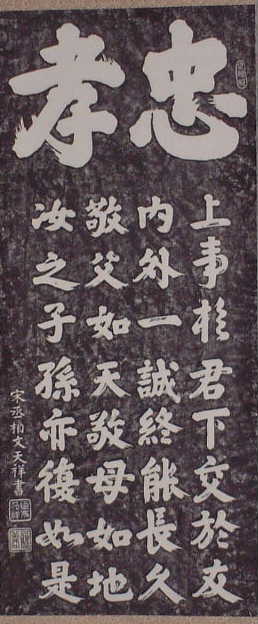 忠孝
上事扵君下交於友
内外一誠終能長久
敬父如天敬母如地
汝之子孫亦復如是
宋丞相文天祥書